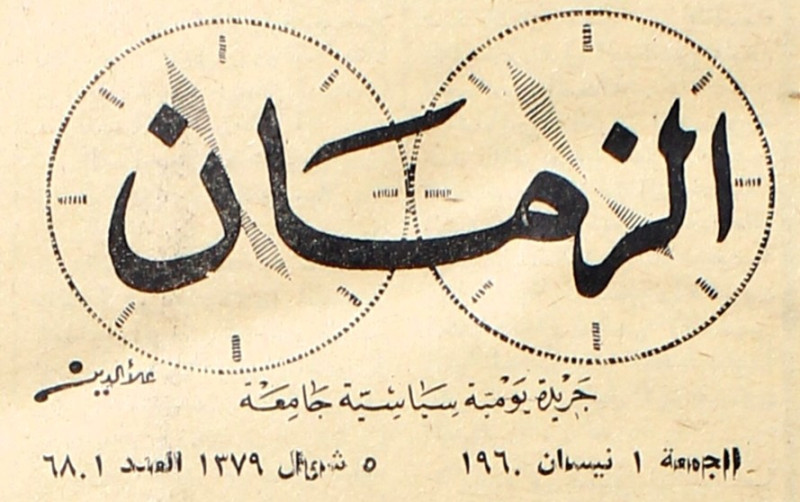 الزمان
علاءالدين
جَرِيْدة يَوْميّة سِيَاسِيّة جَامِعَة
الجمعة ١ نيسان ١٩٦٠ ٥ شوال ١٣٧٩ العدد ٦٨٠١